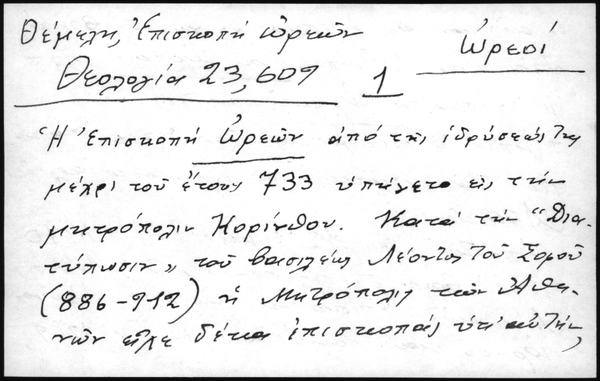 Θέμελη, Ἐπισκοπή Ὠρεῶν
Ὠρεοί
Θεολογία 23, 609
1
Ἡ Ἐπισκοπή Ὠρεῶν ἀπό τῆς ἱδρύσεώς της
μέχρι τοῦ ἔτους 733 ὑπήγετο εἰς τήν
μητρόπολιν Κορίνθου. Κατά τήν "Δια-
τύπωσιν" τοῦ βασιλέως Λέοντος τοῦ Σοφοῦ
(886-912) ἡ Μητρόπολις τῶν Ἀθη-
νῶν εἶχε δέκα ἐπισκοπάς ὑπ' αὐτήν,